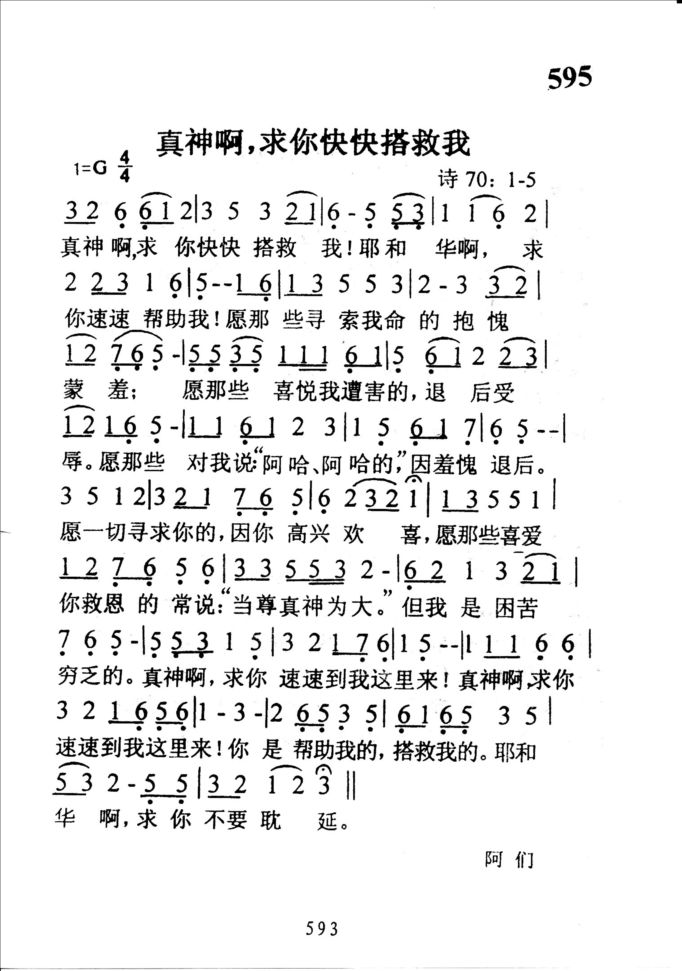 595
真神啊,求你快快搭救我
1=G 4/4
诗 70: 1-5
3 2 6 6 1 2|3 5 3 2 1|6 - 5 5 3|1 1 6 2|
真神啊,求 你快快 搭救 我!耶和 华啊, 求
2 2 3 1 6|5 - - 1 6|1 3 5 5 3|2 - 3 3 2|
你速速 帮助我!愿那 些寻 索我命 的 抱 愧
1 2 7 6 5 -|5 5 3 5 1 1 1 6 1|5 6 1 2 2|
蒙 羞; 愿那些 喜悦我遭害的,退 后受
1 2 1 6 5 -|1 1 6 1 2 3|1 5 6 1 7|6 5 - -|
辱。愿那些 对我说:“阿哈、阿哈的,”因羞愧 退后。
3 5 1 2|3 2 1 7 6 5|6 2 3 2 1|1 3 5 5 1|
愿一切寻求你的,因你 高兴 欢 喜,愿那些喜爱
1 2 7 6 5 6|3 3 5 5 3 2 -|6 2 1 3 2 1|
你救恩 的 常说:“当尊真神为大。”但我 是 困苦
7 6 5 -|5 5 3 1 5|3 2 1 7 6|1 5 - -|1 1 1 6 6|
穷乏的。真神啊,求你 速速到我这里来!真神啊,求你
3 2 1 6 5 6|1 - 3 -|2 6 5 3 5|6 1 6 5 3 5|
速速到我这里来!你 是 帮助我的,搭救我的。耶和
5 3 2 - 5 5|3 2 1 2 3 ||
华 啊,求 你 不要 耽 延。
阿 们
593